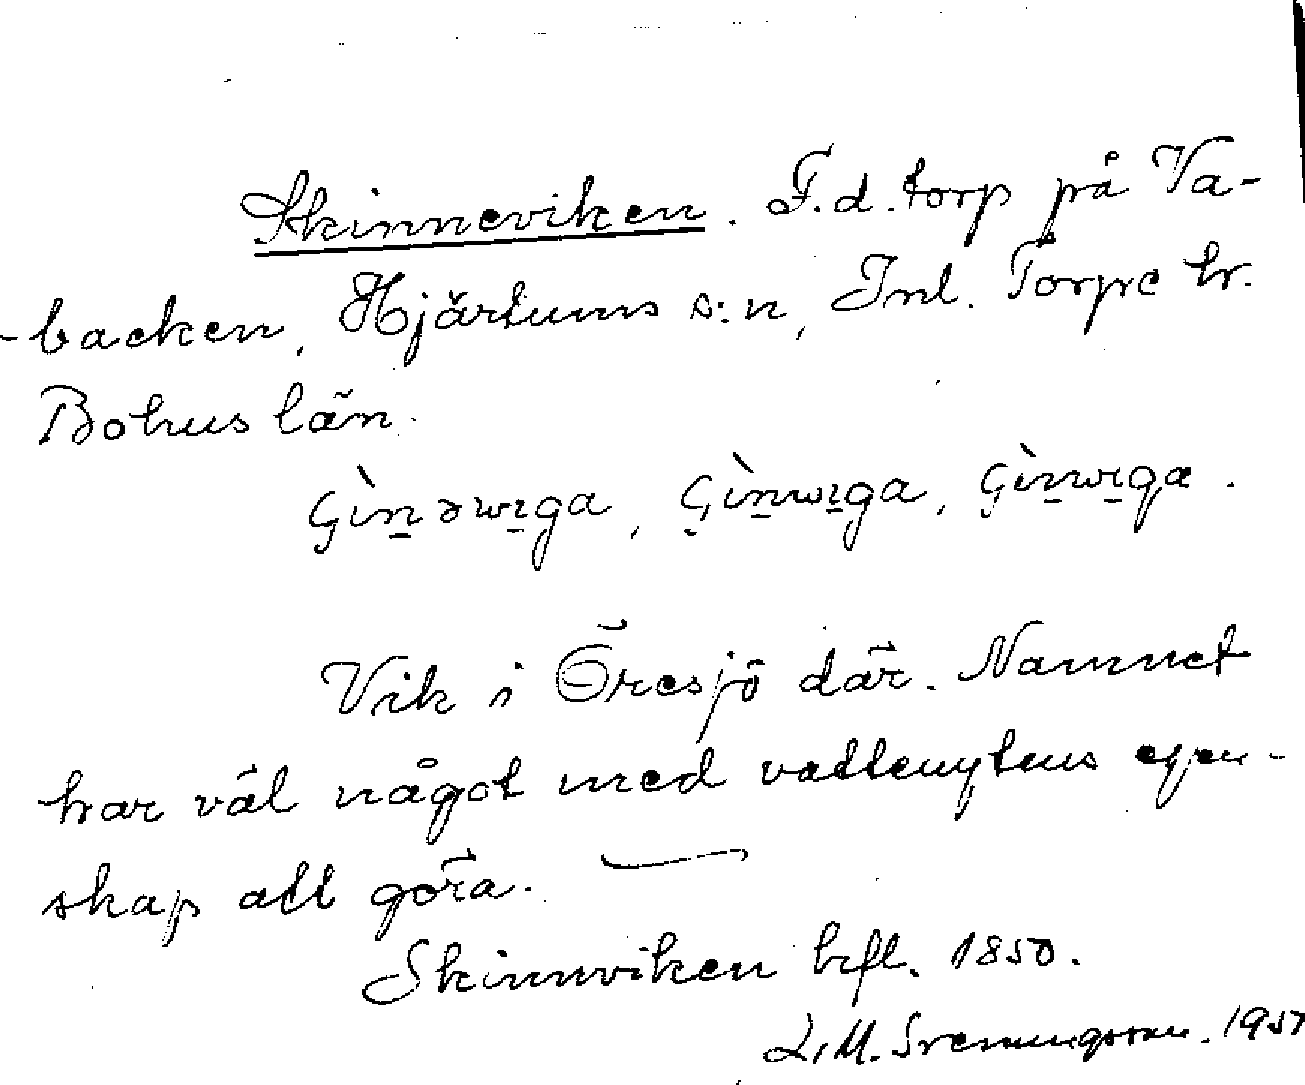 Skinneviken. F.d. torp på Va-
-backen, Hjärtums s:n, Inl. Torpe hr.
Bohus län.
Vik i Öresjö där. Namnet
har väl något med vattenytans egen-
skap att göra.
Skinnviken hfl. 1850.
L.M. Svenungsson. 1957